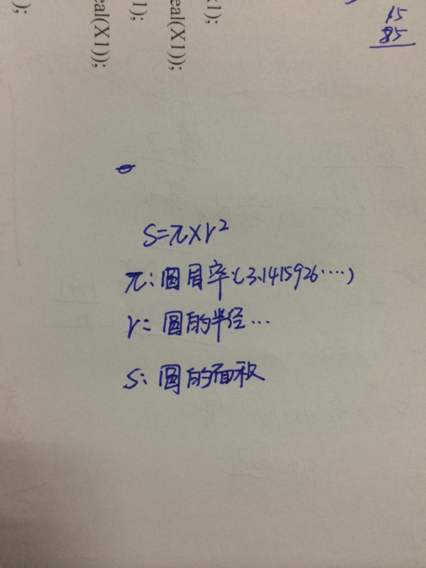 );
eal(X1));
1);
eal(X1));
x1);
15
85
S=π×r²
π:圆周率(3.1415926……)
r:圆的半径…
S:圆的面积